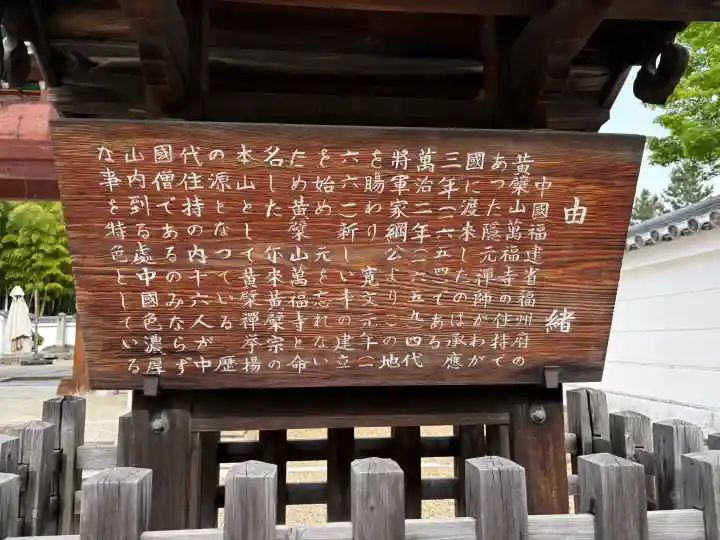 由緒
中國福建省福州府の
黄檗山萬福寺の住持で
あつた隠元禅師がわが
國に渡来したのは承應
三年一六五四である
萬治二年一六五九四代
將軍家綱公よりこの地
を賜わり 寛文元年一
六六一新しい寺の建立
を始め 元を忘れない
ため黄檗山萬福寺と命
名した 尓来黄檗宗の
本山として黄檗禅挙揚
の源となつている 歴
代住持の内十六人が中
國僧であるのみならず
山内到る處中國色濃厚
な事を特色としている